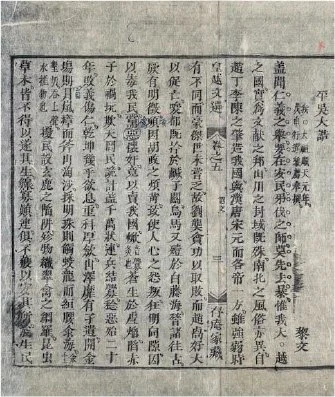 平吳大誥
黎文
蓋聞仁義之舉要在安民弔伐之師莫先去暴惟我大越
之國實為文獻之邦山川之封域既殊南北之風俗亦異自
趙丁李陳之肇造我國與漢唐宋元而各帝一方雖強弱時
皇越文選 卷之五 誥文 三 存庵家藏
有不同而豪傑世未嘗乏故劉龔貪功以取敗而趙卨好大
以促亡唆都既擒於鹹子關烏馬又殪於白藤海稽諸往古
厥有明徵頃因胡政之煩苛致使人心之怨叛狂明伺隙因
以毒我民黨懷奸竟以賣我國焮蒼生於虐焰陷赤
子於禍坑欺天罔民詭計蓋千萬狀連兵結釁稔惡殆二十
年敗義傷仁乾坤幾乎欲息重科厚斂山澤靡有孑遺開金
場則冒嵐瘴而斧山淘沙採明珠則觸蛟龍而絙腰汆海
擾民設玄鹿之陷阱殄物織翠禽之網羅昆虫
草木皆不得以遂其生鰥寡顛連俱不獲以安其所浚生民